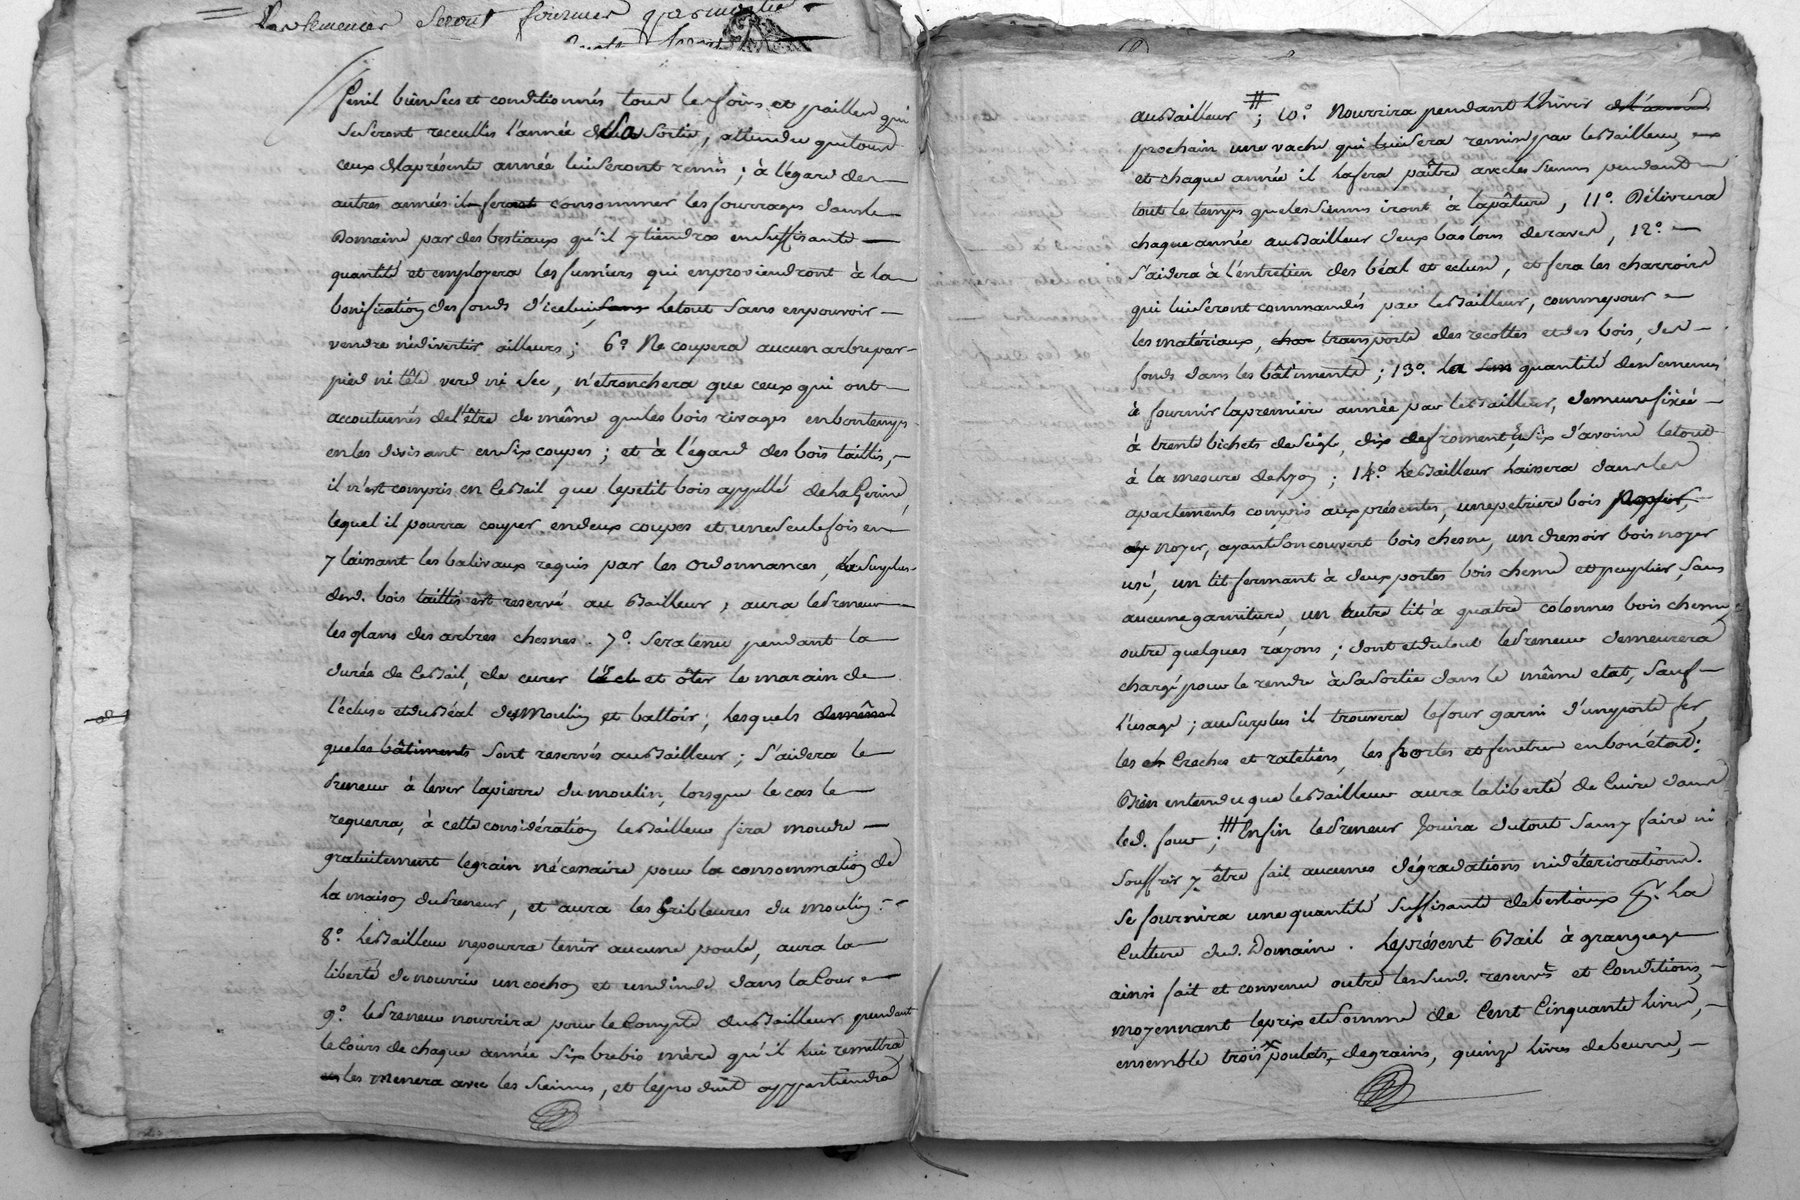 les semences seront fournies par moitié
fenil bien secs et conditionnés tous les foins et pailles qui
se seront receuillis l'année de sa sortie, attendu que tous
ceux de la présente année lui seront remis ; à l'égard des
autres années il fera consommer les fourrages dans le
Domaine par des bestiaux qu'il y tiendra en suffisante
quantité et employera les fumiers qui en proviendront à la
bonification des fonds d'icelui, sans le tout sans en pouvoir
vendre ni divertir ailleurs ; 6.° Ne coupera aucun arbre par
pied ni tête verd ni sec, n'etronchera que ceux qui ont
accoutumés de l'être de même que les bois rivages en bon temps
en les divisant en six coupes ; et à l'égard des bois taillis,
il n'est compris en ce Bail que le petit bois appellé de la
lequel il pourra couper en deux coupes et une seule fois en
y laissant les balivaux requis par les ordonnances, le surplus
desd. bois taillis est reservé au Bailleur ; aura le Preneur
les glans des arbres chesnes. 7.° Sera tenu pendant la
durée de ce Bail, de curer l'Ecl et ôter le marain de
l'écluse et du Béal des Moulin et battoir ; lesquels de même
que les bâtiments sont reservés au Bailleur ; s'aidera le
Preneur à lever la pierre du moulin, lorsque le cas le
requerra, à cette considération le Bailleur fera moudre
gratuitement le grain nécessaire pour la consommation de
la maison du Preneur, et aura les Cribleures du moulin.
8.° Le Bailleur ne pourra tenir aucune poule, aura la
liberté de nourrir un cochon et un dinde dans la Cour
9.° le Preneur nourrira pour le Compte du Bailleur pendant
le Cours de chaque année six brebis mère qu'il lui remettra
et les menera avec les siennes, et le produit appartiendra
au Bailleur # ; 10.° Nourrira pendant l'hiver de l'année
prochain une vache qui lui sera remise par le Bailleur,
et chaque année il la fera paître avec les siennes pendant
tout le temps que les siennes iront à la pâture, 11.° Délivrera
chaque année au Bailleur deux bastons de raves, 12.°
S'aidera à l'entretien des béal et ecluse, et fera les charrois
qui lui seront commandés par le Bailleur, comme pour
les matériaux, char transports des recoltes et des bois, des
fonds dans les bâtiments ; 13.° la sem quantité des semences
à fournir la premiere année par le Bailleur, demeure fixée
à trente bichets de seigle, dix de froment & six d'avoine le tout
à la mesure de Lyon ; 14.° Le Bailleur laissera dans les
apartements compris aux présentes, une petriere bois
noyer, ayant son couvert bois chesne, un dressoir bois noyer
usé, un lit fermant à deux portes bois chesne et peuplier, sans
aucune garniture, un autre lit à quatre colonnes bois chesne,
outre quelques rayons ; dont et du tout le Preneur demeurera
chargé pour le rendre à sa sortie dans le même etat, sauf
l'usage ; au surplus il trouvera le four garni d'une porte fer,
les ch Creches et rateliers, les portes et fenetres en bon état :
Bien entendu que le Bailleur aura la liberté de cuire dans
led. four ; Enfin le Preneur Jouira du tout sans y faire ni
souffrir y être fait aucunes dégradations ni déteriorations.
Se fournira une quantité suffisante de bestiaux pr. la
Culture dud. Domaine. Le présent Bail à grangeage
ainsi fait et convenu outre les sud. reserves et Conditions,
moyennant le prix et somme de Cent Cinquante livres,
ensemble trois poulets de grains, quinze livres de beurre,